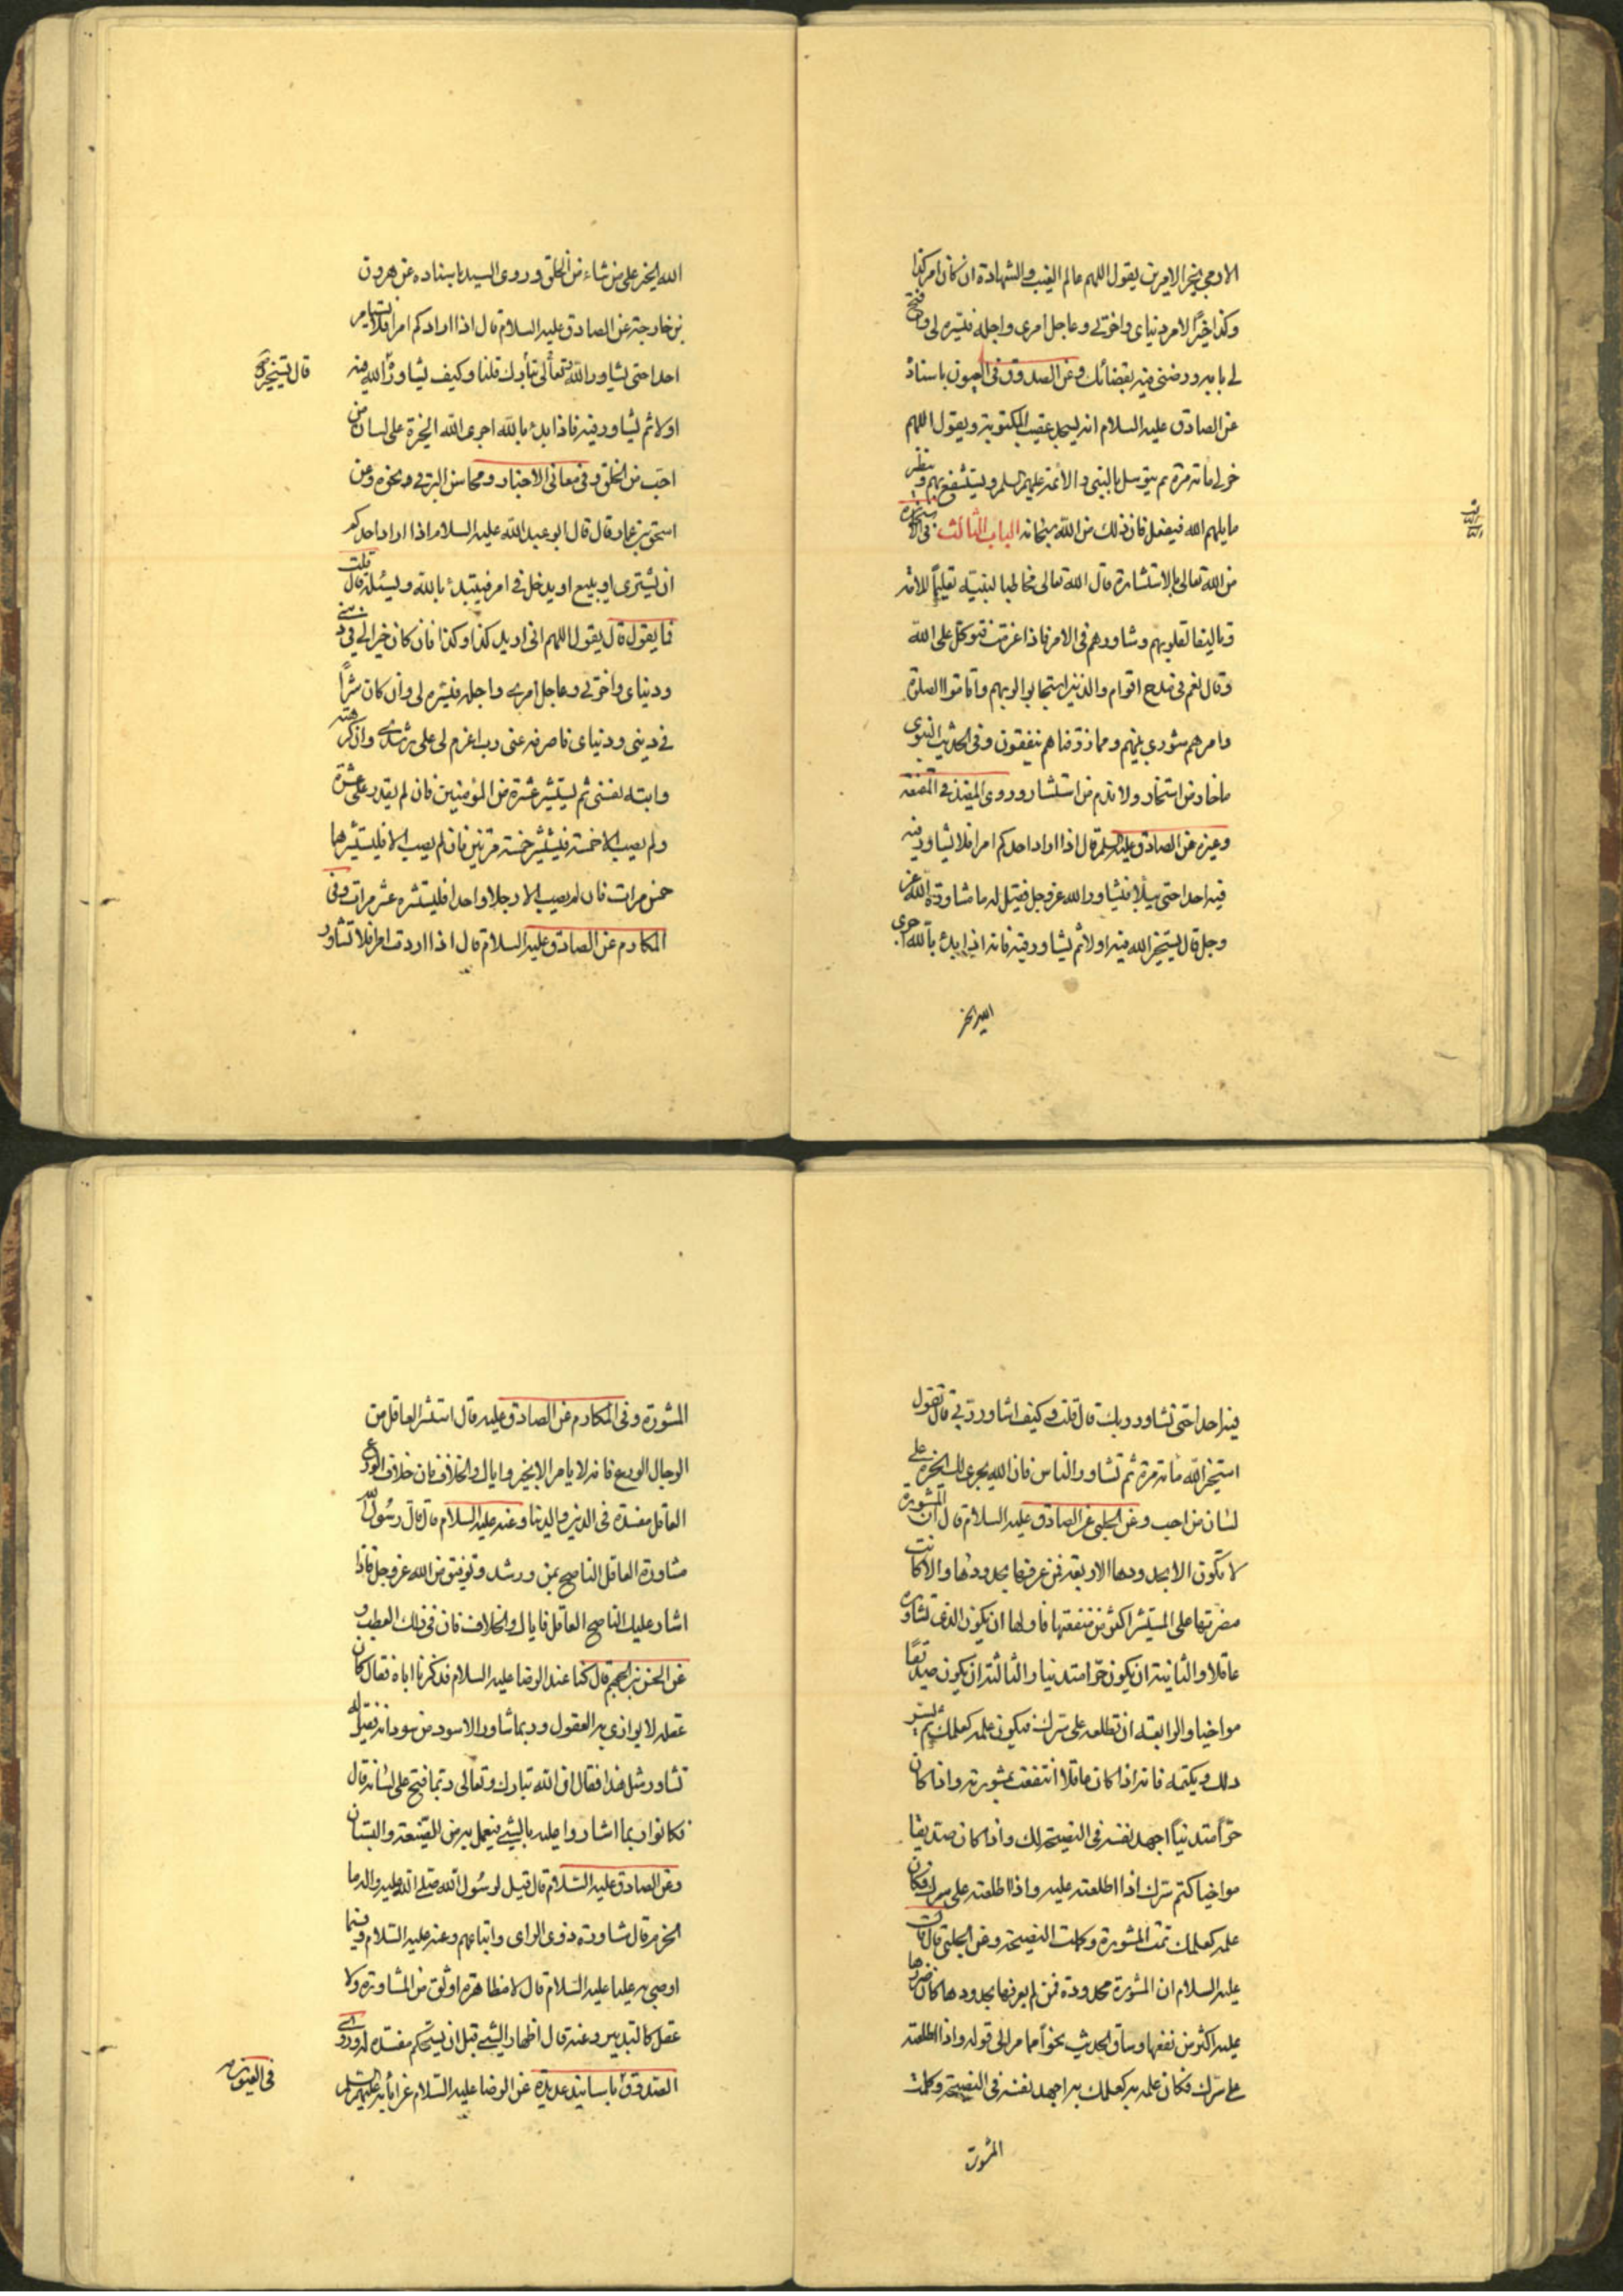 الادمي بخير الامرين يقول اللهم عالم الغيب والشهادة ان كان امر كذا
وكذا خيرًا لامر دنياي واخرتي وعاجل امري واجله فيسره لي وافتح
لي بابه ورضني فيه بقضائك وعن الصدوق في العيون باسناده
عن الصادق عليه السلام انه يسجد عقيب المكتوبة ويقول اللهم
خر لي مائة مرة ثم يتوسل بالنبي والائمة عليهم السلم ويستشفع بهم وينظر
ما يلهم الله فيفعل فان ذلك من الله سبحانه الباب الثالث في الاستخارة
من الله تعالى بالاستشارة قال الله تعالى مخاطبا لنبيه تعليمًا للامة
وتاليفا لقلوبهم وشاورهم في الامر فاذا عزمت فتوكل على الله
وقال نعم في مدح اقوام والذين استجابوا لربهم واقاموا الصلوة
وامرهم شورى بينهم ومما رزقناهم ينفقون وفي الحديث النبوي
ما خاب من استخار ولا ندم من استشار وروى المفيد في المقنعة
وغيره عن الصادق عليه السلم قال اذا اراد احدكم امرا فلا يشاور فيه
فيه احدا حتى يبدأ فيشاور الله عز وجل فقيل له ما مشاورة الله عز
وجل قال يستخير الله فيه اولا ثم يشاور فيه فانه اذا بدئ بالله اجرى
الله الخير
الله الخير على من شاء من الخلق وروى السيد باسناده عن هرون
بن خارجة عن الصادق عليه السلام قال اذا اراد كم امرا فلا يشاور
احدا حتى يشاور الله تعالى تبارك قلنا وكيف يشاور الله فيه
قال يستخير الله
اولا ثم يشاور فيه فاذا بدئ بالله اجرى الله الخيرة على لسان من
احب من الخلق وفي معاني الاخبار ومحاسن البرقي نحوه وعن
اسحق بن عمار قال قال ابو عبد الله عليه السلام اذا اراد احدكم
ان يشتري او يبيع او يدخل في امر فيبتدئ بالله ويسئله قال قلت
فما يقول قال يقول اللهم اني اريد كذا وكذا فان كان خيرا لي في ديني
ودنياي واخرتي وعاجل امري واجله فيسره لي وان كان شرًا
في ديني ودنياي فاصرفه عني رب اعزم لي على رشدي وان كرهته
وابته نفسي ثم يستشير عشرة من المؤمنين فان لم يقدر على عشرة
ولم يصب الا خمسة فيستشير خمسة مرتين فان لم يصب الا فليستشرهما
خمس مرات فان لم يصب الا رجلا واحدا فليستشره عشر مرات وفي
المكارم عن الصادق عليه السلام قال اذا اردت امرا فلا تشاور
فيه احدا حتى تشاور ربك قال قلت وكيف اشاور ربي قال تقول
استخير الله مائة مرة ثم تشاور الناس فان الله يجري لك الخيرة على
لسان من احب وعن الحلبي عن الصادق عليه السلام قال ان المشورة
لا تكون الا بحدودها الاربعة فمن عرفها بحدودها والا كانت
مضرتها على المستشير اكثر من منفعتها فاولها ان يكون الذي تشاوره
عاقلا والثانية ان يكون حرّا متدينا والثالثة ان يكون صديقًا
مواخيا والرابعة ان تطلعه على سرك فيكون علمه كعلمك ثم يستر
ذلك ويكتمه فانه اذا كان عاقلا انتفعت بمشورته واذا كان
حرًّا متدينًا اجهد نفسه في النصيحة لك واذا كان صديقا
مواخيا كتم سرك اذا اطلعته عليه واذا اطلعته على سرك فكان
علمه كعلمك تمت المشورة وكملت النصيحة وعن الحلبي قال قال
عليه السلام ان المشورة محدودة فمن لم يعرفها بحدودها كان ضررها
عليه اكثر من نفعها وساق الحديث نحوًا مما مر الى قوله واذا اطلعته
على سرك فكان علمه به كعلمك به اجهد نفسه في النصيحة وكملت
المشورة
المشورة وفي المكارم عن الصادق عليه قال استشر العاقل من
الرجال الورع فانه لا يامر الا بخير واياك والخلاف فان خلاف الورع
العاقل مفسدة في الدين والدنيا وعنه عليه السلام قال قال رسول الله
مشاورة العاقل الناصح يمن ورشد وتوفيق من الله عز وجل فاذا
اشار عليك الناصح العاقل فاياك والخلاف فان في ذلك العطب و
عن الحسن بن الجهم قال كنا عند الرضا عليه السلام فذكرنا اباه فقال كان
عقله لا يوازى به العقول وربما شاور الاسود من سودانه فقيل له
تشاور مثل هذا فقال ان الله تبارك وتعالى ربما فتح على لسانه قال
فكانوا ربما اشاروا عليه بالشئ فيعمل به من الضيعة والبستان
وعن الصادق عليه السلام قال قيل لرسول الله صلى الله عليه واله ما
الحزم قال مشاورة ذوي الراى واتباعهم وعنه عليه السلام وفيما
اوصى به عليا عليه السلام قال لا مظاهرة اوثق من المشاورة ولا
عقل كالتدبير وعنه قال اظهار الشئ قبل ان يستحكم مفسدة له وروى
الصدوق باسانيد عديدة عن الرضا عليه السلام عن ابائه عليهم السلم
في العيون